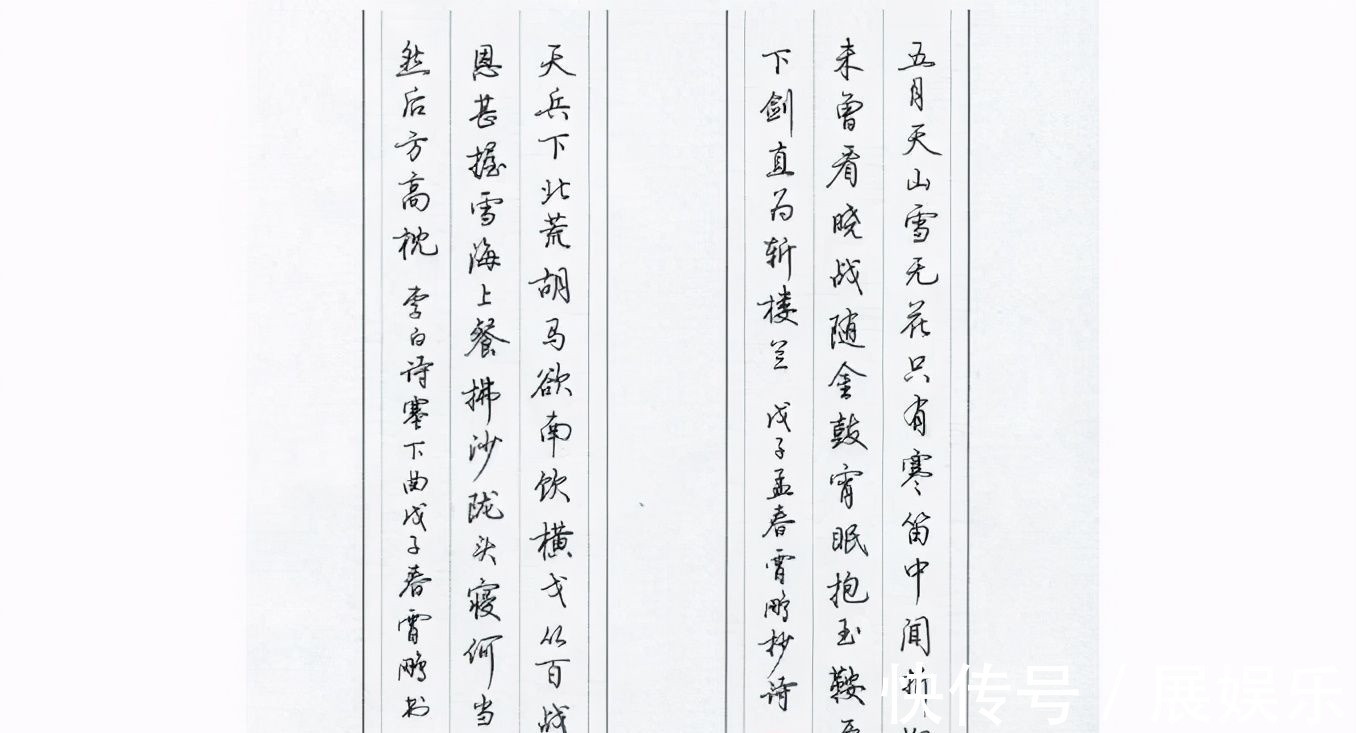 五月天山雪无花只有寒笛中闻折
未曾看晓战随金鼓宵眠抱玉鞍
下剑直为斩楼兰 戊子孟春霄鹏抄诗
天兵下北荒胡马欲南饮横戈从百战
恩甚握雪海上餐拂沙陇头寝何当
然后方高枕 李白诗塞下曲戊子春霄鹏书
快传号 / 展娱乐